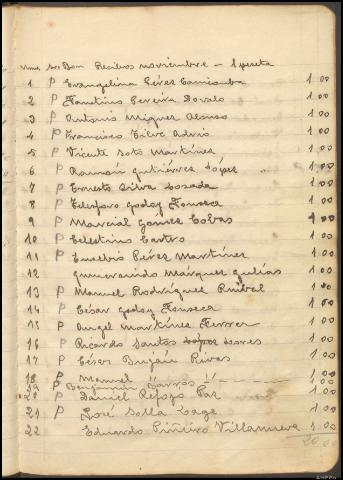 Recibos noviembre - 1 peseta
1 P Evangelina Pérez 1 00
2 P Faustino Pereira Dovalo 1 00
3 P Antonio Miguez Alonso 1 00
4 P Francisco 1 00
5 P Vicente Soto Martínez 1 00
6 P Ramón gutiérrez López 1 00
7 P Ernesto Silva Losada 1 00
8 P Telesforo godoy Fonseca 1 00
9 P Marcial Gomez Cobas 1 00
10 P Celestino Castro 1 00
11 P Eusebio Pérez Martínez 1 00
12 gumersindo Márquez 1 00
13 P Manuel Rodríguez 1 00
14 P César godoy Fonseca 1 00
15 P Angel Martínez Ferrer 1 00
16 P Ricardo Santos 1 00
17 P César Buján Rivas 1 00
18 P Manuel 1 00
19 P Benjamín Barros 1 00
20 P Daniel Refojo Paz 1 00
21 P José Solla Lage 1 00
22 Eduardo Piñeiro Villanueva 1 00
20.00